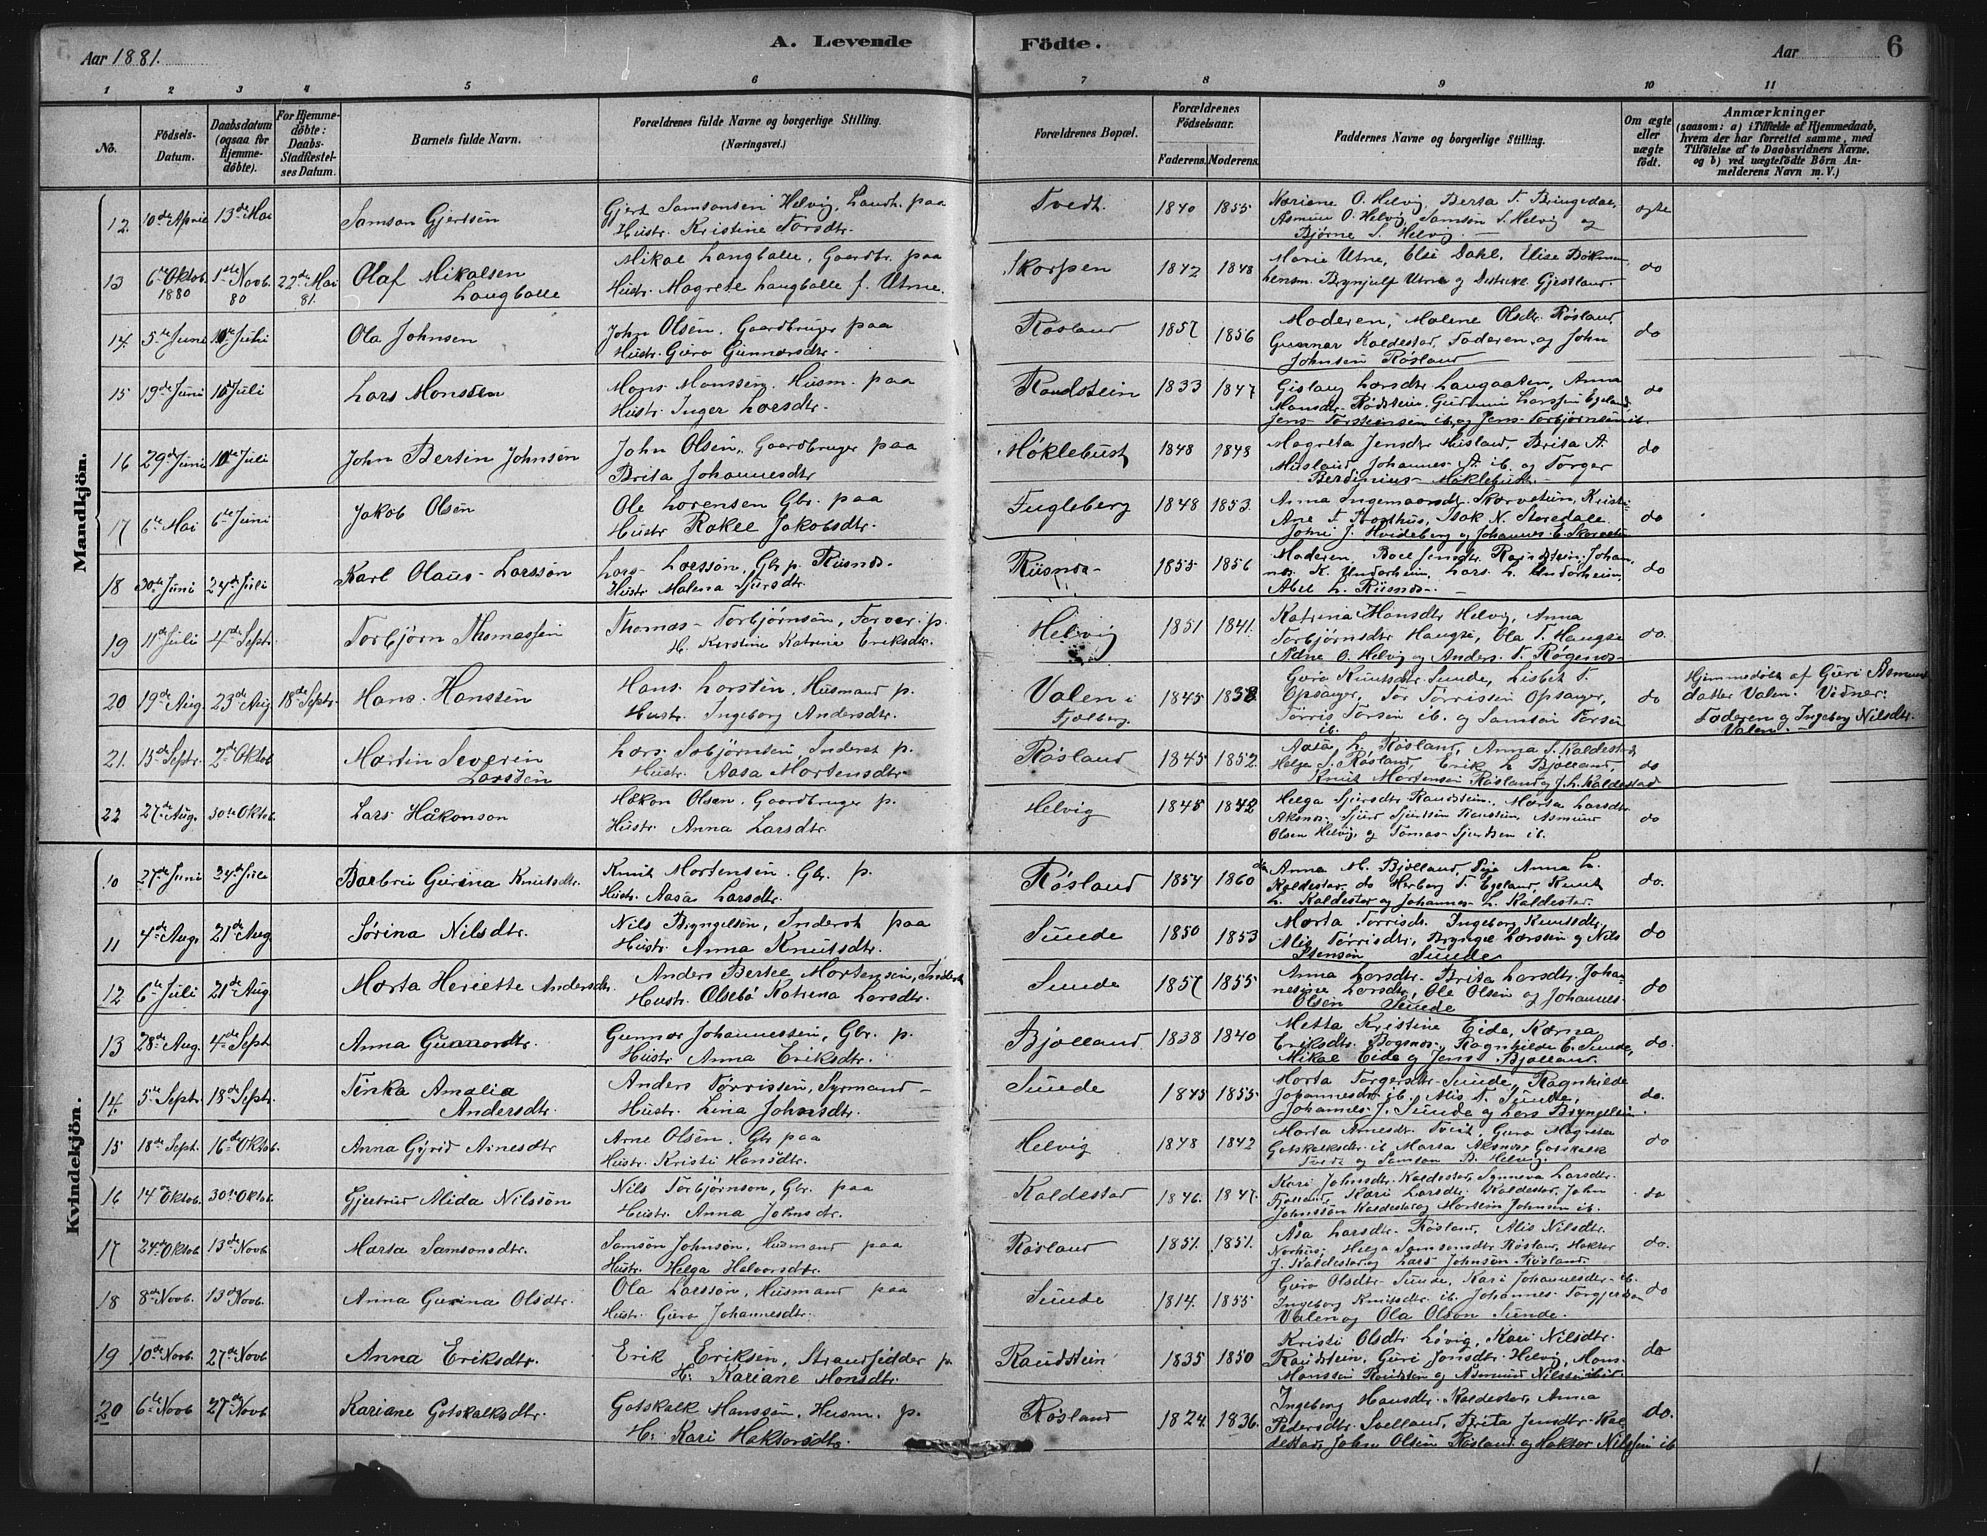 Aar 1881.
A. Levende Födte.
Aar
6
1 2 3 4 5 6 7 8 9 10 11
No.
Födsels-Datum.
Daabsdatum (ogsaa for Hjemmedöbte).
For Hjemmedöbte: Daabs-Stadfæstelses Datum.
Barnets fulde Navn.
Forældrenes fulde Navne og borgerlige Stilling. (Næringsvei.)
Forældrenes Bopæl.
Forældrenes Födselsaar.
Faderens. Moderens.
Faddernes Navne og borgerlige Stilling.
Om ægte eller uægte födt.
Anmærkninger
(saasom: a) i Tilfælde af Hjemmedaab, hvem der har forrettet samme, med Tilföielse af to Daabsvidners Navne, og b) ved uægtefödte Börn Anmelderens Navn m. V.)
Mandkjön.
12. 10de April 13de Mai Samson Gjertsen
Gjert Samsonsen Helvig, Landh. paa
Hustr. Kristine Torsdtr.
Tvedt. 1840 1855
Bjørne S. Helvig.
ægte
13 6te Oktob. 1880 1ste Novb. 80 22de Mai 81.
Olaf Mikalsen Langballe
Mikal Langballe, Gaardbr. paa
Hustr. Magrete Langballe f. Utne.
Skorpen 1842 1848
Marie Utne, Elei Dahl, Elise
Lensm. Brynjulf Utne og Gjestland.
do
14. 5te Juni 10de Juli Ola Johnsen
John Olsen, Gaardbruger paa
Hustr. Guro Gunnarsdtr.
Røsland 1857 1856
Moderen, Malene Olsdtr. Røsland,
Gunnar Kaldestad, Faderen og John
Johnsen Røsland
do
15 19de Juni 10de Juli Lars Monssen
Mons Monssen, Husm. paa
Hustr. Inger Larsdtr.
Raudstein 1833 1847
do
16 29de Juni 10de Juli John Bertin Johnsen
John Olsen, Gaardbruger paa
Brita Johannesdtr
Høklebust 1848 1848
Magreta Jensdtr Husland, Brita A.
Husland, Johannes A. ib. og Torger
Berdinius Høklebust
do
17 6te Mai 6te Juni Jakob Olsen
Ole Lorensen Gbr. paa
Hustr Rakel Jakobsdtr.
Fugleberg 1848 1853.
do
18 30te Juni 24de Juli Karl Olaus Larssøn
Lars Larssøn, Gbr p. Riisnæs
Hustr Malena Sjursdtr.
Riisnæs 1855 1856
do
19 11te Juli 4de Septr. Torbjørn Thomassen
Thomas Torbjørnsøn, Forver. p.
H. Kirstine Katrina Eriksdtr.
Helvig 1851 1841.
Katrina Hansdtr Helvig, Anna
Torbjørnsdtr Haugse, Ola T. Haugse
do.
20 19de Aug 23de Aug 18de Septr. Hans Hanssen
Hans Larssen, Husmand p.
Hustr. Ingeborg Andersdtr.
Valen i Fjelberg. 1845 1838
Guro Knutsdtr Sunde, Lisbet T.
Opsanger, Tor Torrissen Opsanger,
Tørris Torsen ib. og Samson Torsen
ib.
do
Hjemmedøbt af Guri Asmund
datter Valen. Vidner:
Faderen og Ingeborg Nilsdtr.
Valen.
21. 15de Septr. 2de Oktob Martin Severin Larssen
Lars Asbjørnsen, Inderst p.
Hustr. Aasa Mortensdtr.
Røsland 1845 1852.
Aasa L. Røsland, Anna S. Kaldestad
Helga S. Røsland, Erik L. Bjølland,
Knut Mortensen Røsland og J. L. Kaldestad
do
22 27de Aug. 30te Oktob. Lars Håkonson
Håkon Olsen, Gaardbruger p.
Hustr. Anna Larsdtr.
Helvig 1845 1842
Olsen Helvig og Tomas Sjurdsen ib.
do
Kvindekjön.
10 27de Juni 24de Juli Barbru Gurina Knutsdtr.
Knut Mortensen, Gbr. p.
Hustr. Aasa Larsdtr.
Røsland 1854 1860
Anna M. Bjølland, Pige Anna L.
Kaldestad do Herborg T. Egeland, Knut
L. Kaldestad og Johannes L. Kaldestad
do.
11 4de Aug. 21de Aug. Sørina Nilsdtr.
Nils Bryngelsen, Inderst paa
Hustr. Anna Knutsdtr.
Sunde 1850 1853
Marta Torrisdtr. Ingeborg Knutsdtr,
Alis Tørrisdtr, Bryngel Larssen og Nils
Stensøn Sunde
do
12 6te Juli 21de Aug. Marta Heriette Andersdtr.
Anders Bertel Mortensen, Inderst
Hustr. Olsebø Katrina Larsdtr.
Sunde 1857 1855
Anna Larsdtr. Brita Larsdtr. Johannesine
Larsdtr, Ole Olsen og Johannes
Olsen Sunde
do
13 28de Aug. 4de Sept Anna Gunnarsdtr
Gunnar Johannessen, Gbr. p.
Hustr. Anna Eriksdtr.
Bjølland 1838 1840
Metta Kristine Eide, Karna
Eriksdtr. Bogsnæs, Ragnhilde E. Sunde,
Mikal Eide og Jens Bjølland.
do.
14. 5te Septr. 18de Septr. Tinka Amalia Andersdtr.
Anders Tørrissen, Syrmand
Hustr. Lina Johnsdtr.
Sunde 1845 1855
Marta Torgersdtr Sunde, Ragnhilde
Johannesdtr ib. Alis T. Sunde,
Johannes J. Sunde og Lars Bryngelsen
do.
15 18de Sept. 16de Oktob. Anna Gyrid Arnesdtr
Arne Olsen, Gbr paa
Hustr. Kristi Hansdtr.
Helvig 1848 1842
Marta Arnesdtr Tveit, Guro Magreta
Gotskalksdtr. ib Marta Aksnes, Gotskalk
Tveit og Samson B. Helvig.
do
16 14de Oktob. 30te Oktob. Gjertrud Alida Nilssøn
Nils Torbjørnson, Gbr. paa
Hustr. Anna Johnsdtr.
Kaldestad 1846. 1847.
Kari Johnsdtr. Kaldestad, Synneva Larsdtr.
Kari Larsdtr. Kaldestad, John
Johnssøn Kaldestad og Martein Johnsen ib.
do
17 24de Oktob 13de Novb. Marta Samsonsdtr.
Samsøn Johnsøn, Husmand paa
Hustr. Helga Halvorsdtr.
Røsland 1851. 1851.
Åsa Larsdtr. Røsland, Alis Nilsdtr.
Helga Samsonsdtr Røsland, Haktor
J. Kaldestad og Lars Johnsøn Røsland.
do.
18 8de Novb. 13de Novb. Anna Gurina Olsdtr.
Ola Larssøn, Husmand paa
Hustr. Guro Johannesdtr.
Sunde 1814. 1855
Guro Olsdtr Sunde, Kari Johannesdtr ib.
Ingeborg Knutsdtr ib. Johannes
Valen og Ola Olson Sunde.
do
19 10de Novb. 27de Novb Anna Eriksdtr.
Erik Eriksen, Strandsidder p.
H. Kariane Monsdtr.
Raudstein 1835 1850
Kristi Olsdtr Løvig, Kari Nilsdtr.
Raudstein, Guri Jonsdtr. Helvig, Mons
Monssen Raudstein og Asmund Nilssen ibid
do
20 6te Novb 27de Novb Kariane Gotskalksdtr.
Gotskalk Hanssøn, Husm. p.
H. Kari Haktorsdtr.
Røsland 1824 1836.
Ingeborg Hansdtr. Kaldestad, Anna
Pedersdtr. Svelland, Brita Jensdtr. Kaldestad,
John Olsen Røsland og Haktor Nilssen ib
do.